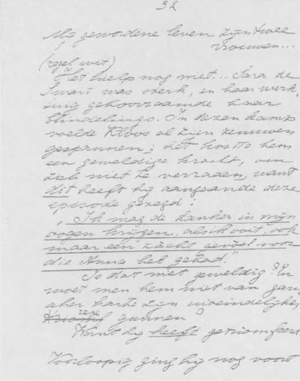 32
geworden leven zijn twee
vrouwen...
(regel wit)
Het hielp nog niet... Sara de
Swart was sterk, en haar werk
gehoorzaamde haar
blindelings. In dezen kamp
voelde Kloos al zijn zenuwen
gespannen; het kostte hem
een geweldige kracht, om
zich niet te verraden, want
dit heeft hij aangaande deze
episode gezegd:
"Ik mag de kanker in mijn
oogen krijgen, als ik ooit ook
maar een zacht voor
die Anna heb gehad."
Is dat niet geweldig? En
moet men hem niet van gan-
scher harte zijn uiteindelijke
gunnen?
Want hij heeft getriomfeerd
Voorloopig ging hij nog voort